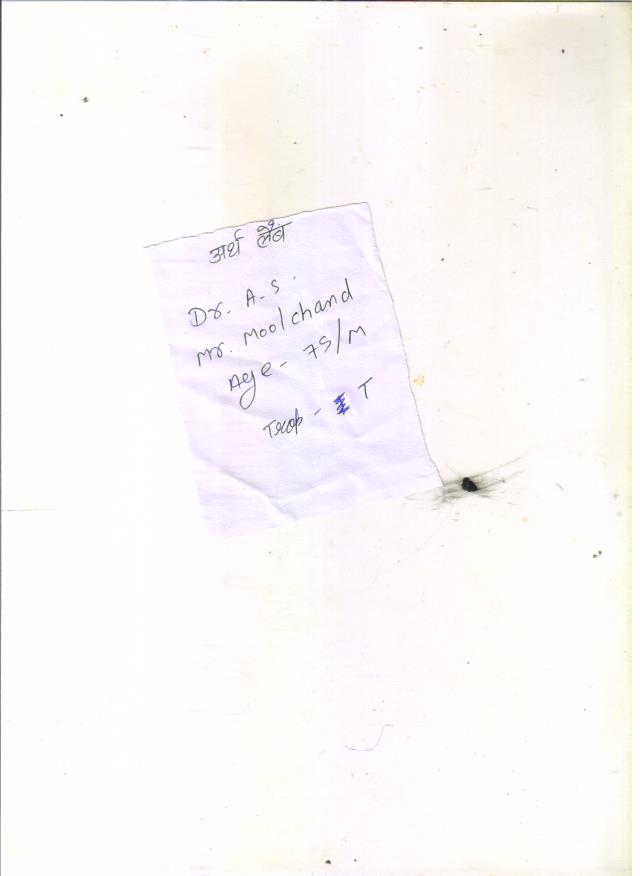 अर्थ लैब
Dr. A.S.
Mr. Moolchand
Age - 75/M
Trop - T